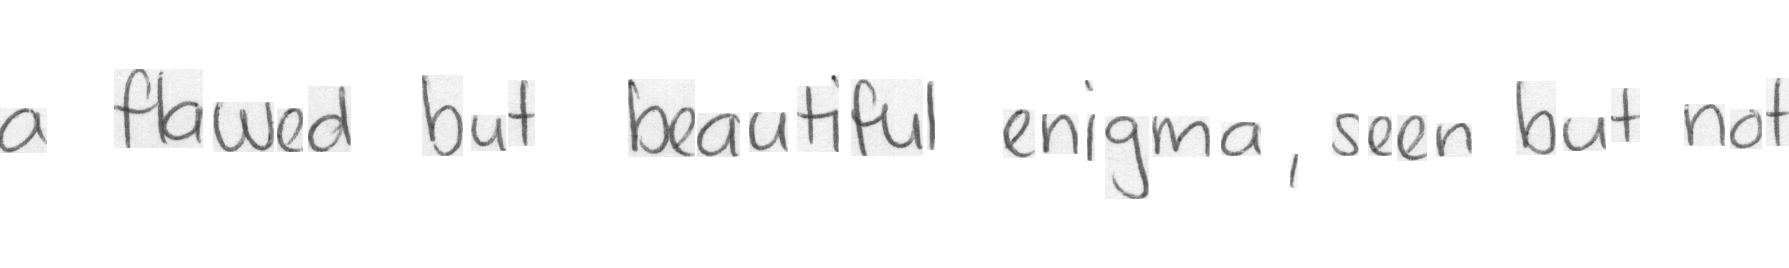 a flawed but beautiful enigma, seen but not